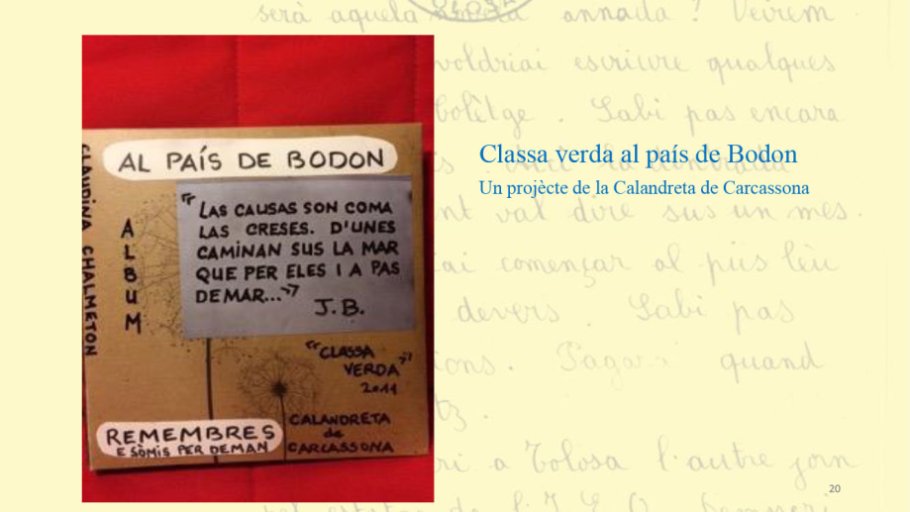 serà aquela annada ? Veirem
voldriai escriure qualques
Sabi pas encara
AL PAÍS DE BODON
CLAUDINA CHALMETON
ALBUM
"LAS CAUSAS SON COMA
LAS CRESES. D'UNES
CAMINAN SUS LA MAR
QUE PER ELES I A PAS
DE MAR..."
J.B.
"CLASSA
VERDA"
2011
CALANDRETA
de
CARCASSONA
REMEMBRES
E SÒMIS PER DEMAN
Classa verda al país de Bodon
Un projècte de la Calandreta de Carcassona
val dire sus un mes.
començar al pus lèu
devers. Sabi pas
quand
a Tolosa l'autre jorn
20